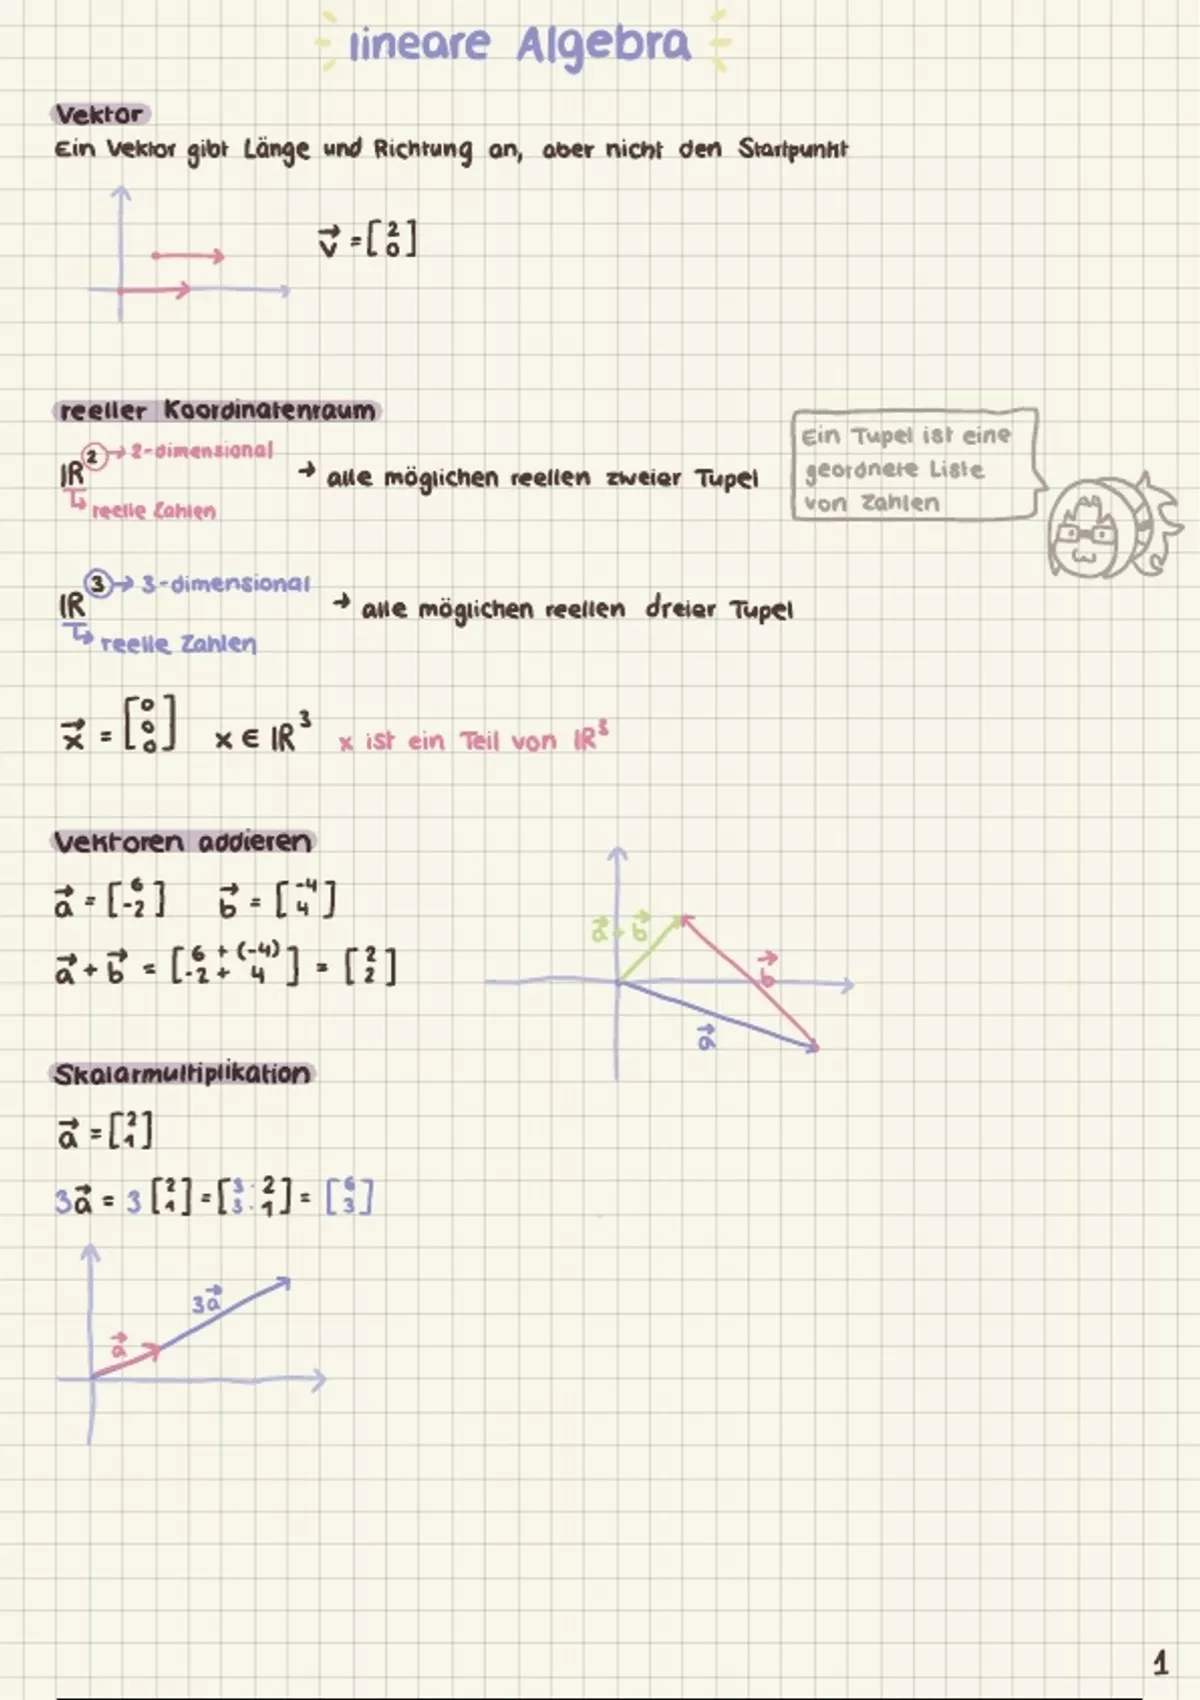 lineare Algebra
Vektor
Ein Vektor gibt Länge und Richtung an, aber nicht den Startpunkt
v⃗ = [2 0]
reeller Koordinatenraum
ℝ² → 2-dimensional
↳ reelle Zahlen
→ alle möglichen reellen zweier Tupel
Ein Tupel ist eine
geordnete Liste
von Zahlen
ℝ³ → 3-dimensional
↳ reelle Zahlen
→ alle möglichen reellen dreier Tupel
x⃗ = [0 0 0] x ∈ ℝ³ x ist ein Teil von ℝ³
Vektoren addieren
a⃗ = [6 -2] b⃗ = [-4 4]
a⃗ + b⃗ = [6 + (-4) -2 + 4] = [2 2]
a⃗ + b⃗
b⃗
a⃗
Skalarmultiplikation
a⃗ = [2 1]
3a⃗ = 3 [2 1] = [3·2 3·1] = [6 3]
3a⃗
a⃗
1